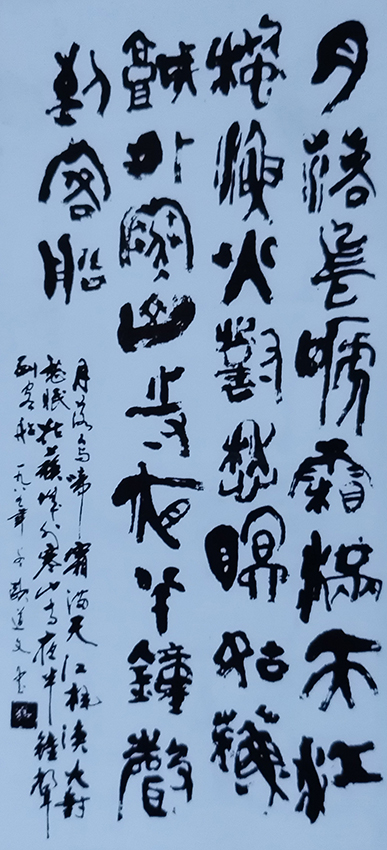 月落烏啼霜滿天江
楓漁火對愁眠姑蘇
城外寒山寺夜半鐘聲
到客船
月落烏啼霜满天江楓渔火对
愁眠姑蘇城外寒山寺夜半鐘聲
到客船 一九八年 道文